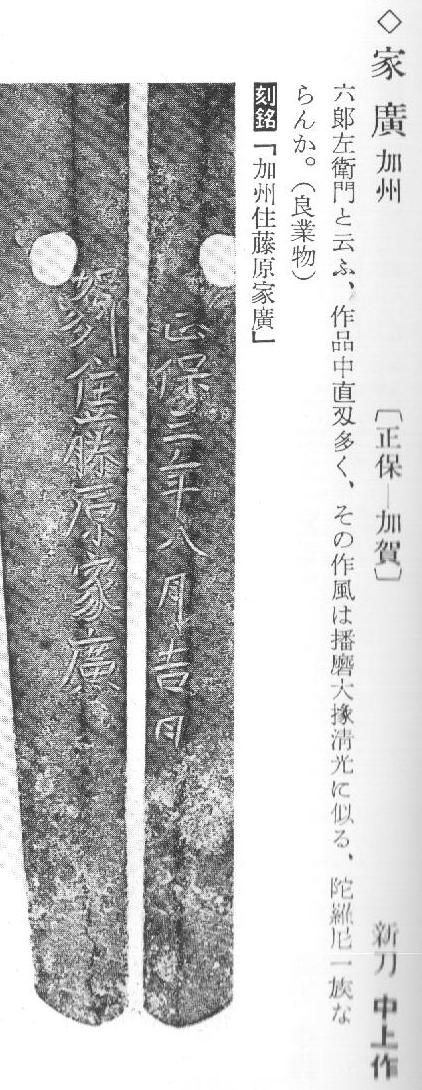 ◇家廣 加州 〔正保―加賀〕 新刀 中上作
六郞左衛門と云ふ、作品中直刄多く、その作風は播磨大掾淸光に似る、陀羅尼一族な
らんか。（良業物）
刻銘「加州住藤原家廣」
正保三年八月吉日
加州住藤原家廣